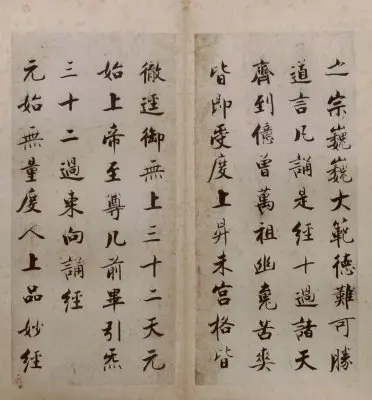 之宗巍巍大範德難可勝
道言凡誦是經十過諸天
齊到億曾萬祖幽魂苦爽
皆即受度上昇朱宫格皆
徹逕御無上三十二天元
始上帝至尊几前畢引炁
三十二過東向誦經
元始無量度人上品妙經